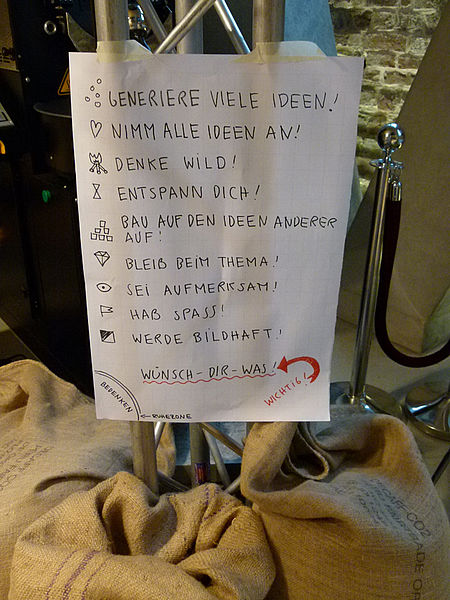 GENERIERE VIELE IDEEN!
NIMM ALLE IDEEN AN!
DENKE WILD!
ENTSPANN DICH!
BAU AUF DEN IDEEN ANDERER
AUF!
BLEIB BEIM THEMA!
SEI AUFMERKSAM!
HAB SPASS!
WERDE BILDHAFT!
WÜNSCH-DIR-WAS!
WICHTIG!
BEDENKEN
RUHEZONE